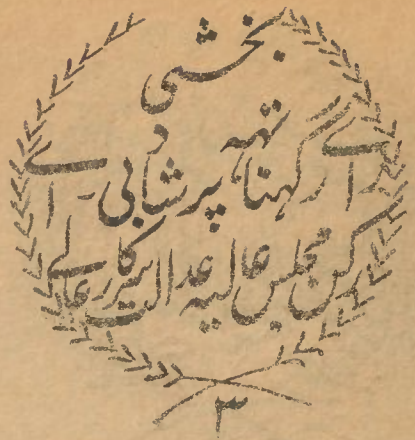 بخشی
رائے رگہناتہہ پرشاد بی۔ اے
رکن مجلس عالیہ عدالت سرکار عالی
۳